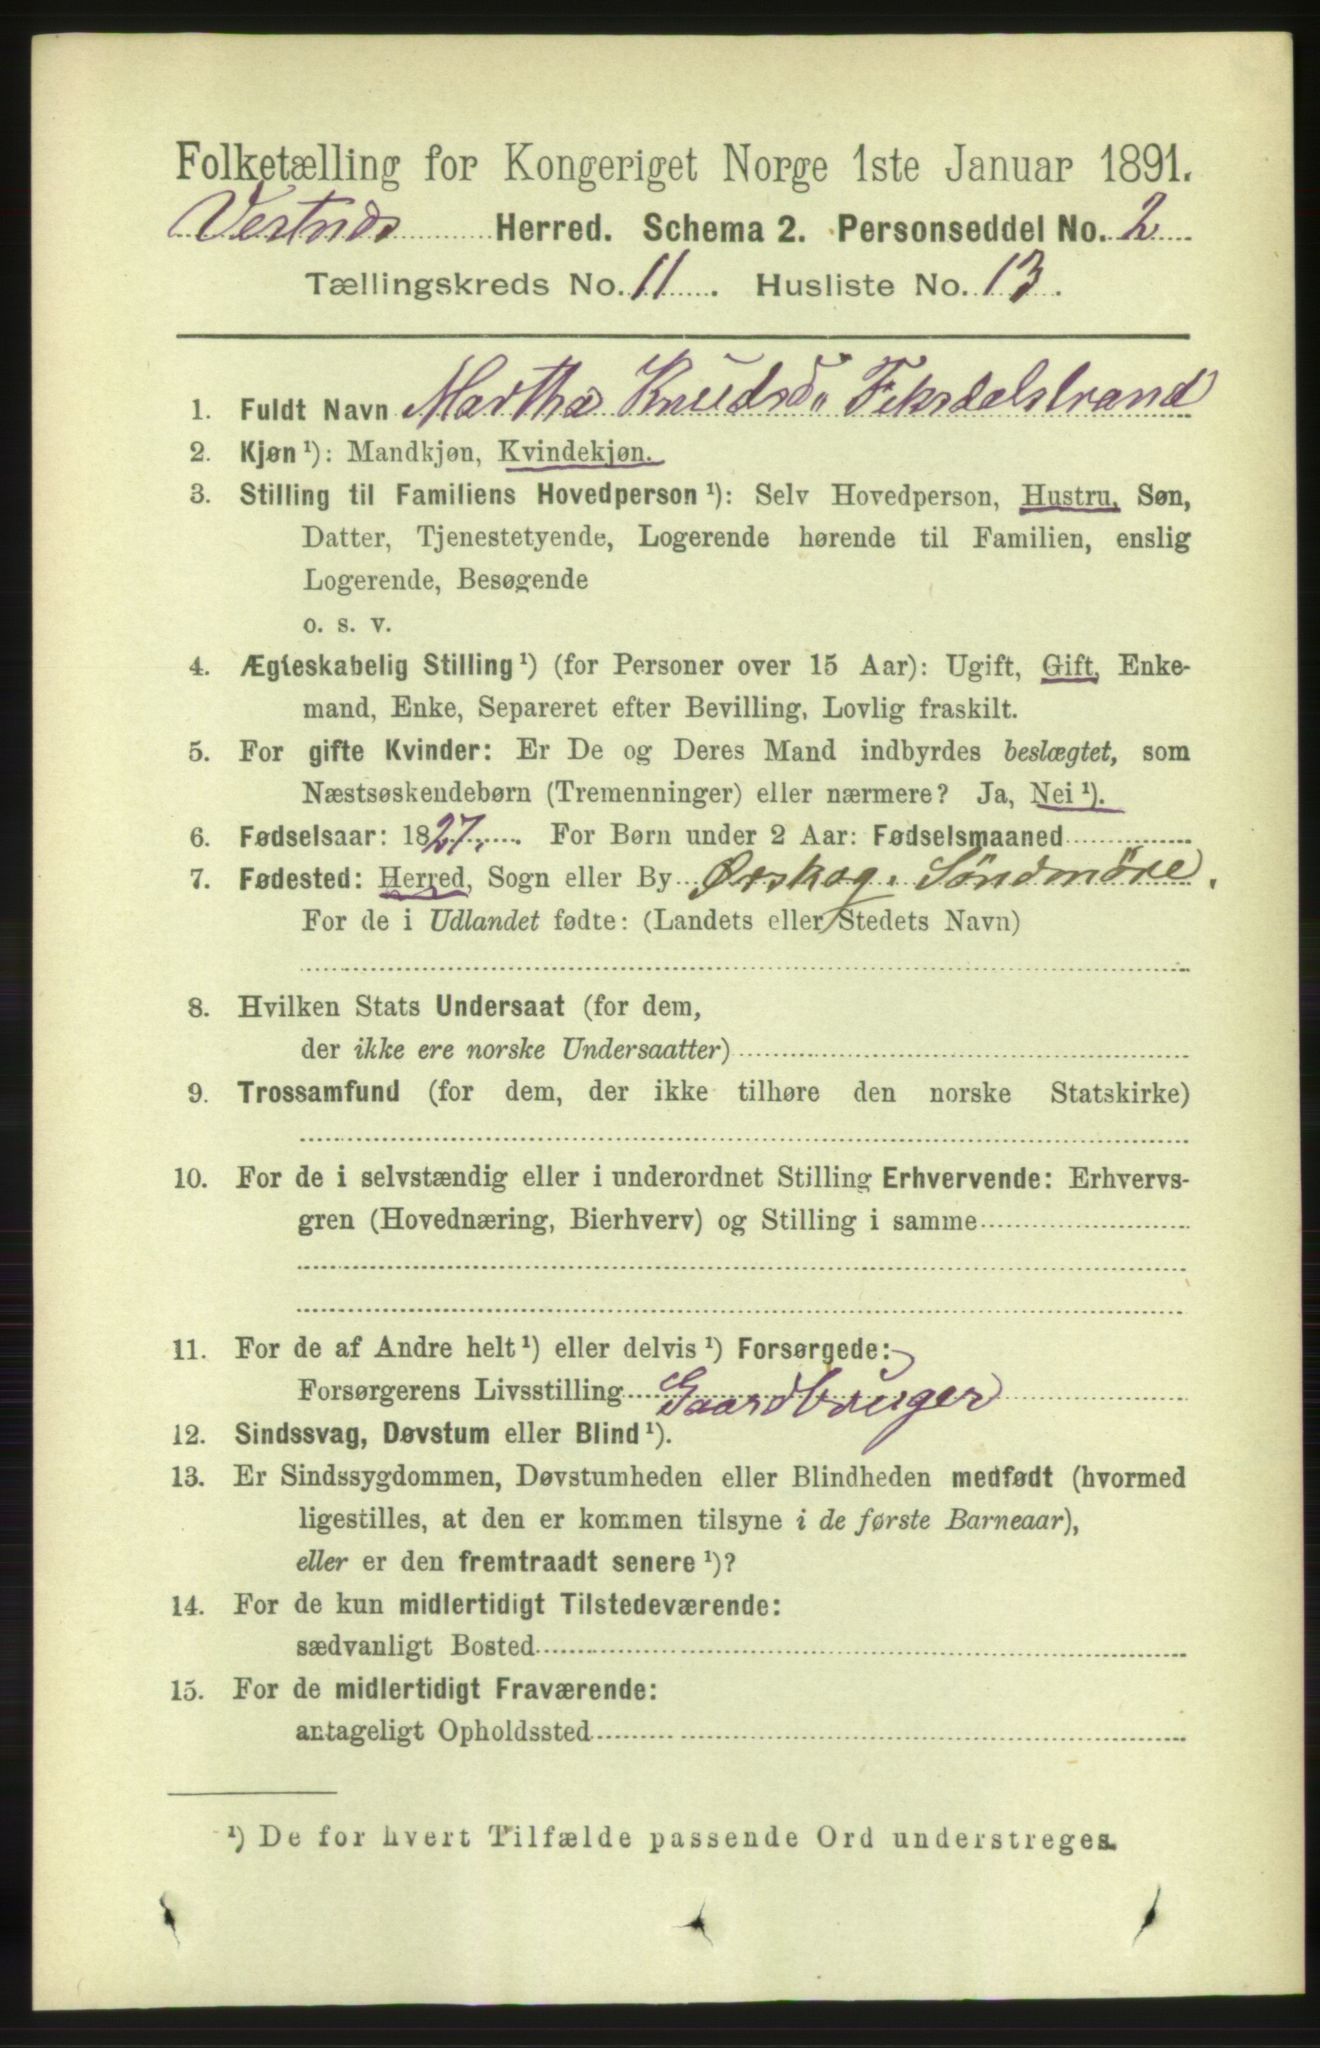 Folketælling for Kongeriget Norge 1ste Januar 1891.
Vestnes Herred. Schema 2. Personseddel No. 2
Tællingskreds No. 11. Husliste No. 13.
1. Fuldt Navn Martha Knudsd. Feksdalstrand
2. Kjøn ¹): Mandkjøn, Kvindekjøn.
3. Stilling til Familiens Hovedperson ¹): Selv Hovedperson, Hustru, Søn,
Datter, Tjenestetyende, Logerende hørende til Familien, enslig
Logerende, Besøgende
o. s. v.
4. Ægteskabelig Stilling ¹) (for Personer over 15 Aar): Ugift, Gift, Enke-
mand, Enke, Separeret efter Bevilling, Lovlig fraskilt.
5. For gifte Kvinder: Er De og Deres Mand indbyrdes beslægtet, som
Næstsøskendebørn (Tremenninger) eller nærmere? Ja, Nei ¹).
6. Fødselsaar: 1827. For Børn under 2 Aar: Fødselsmaaned
7. Fødested: Herred, Sogn eller By Ørskog. Söndmöre.
For de i Udlandet fødte: (Landets eller Stedets Navn)
8. Hvilken Stats Undersaat (for dem,
der ikke ere norske Undersaatter)
9. Trossamfund (for dem, der ikke tilhøre den norske Statskirke)
10. For de i selvstændig eller i underordnet Stilling Erhvervende: Erhvervs-
gren (Hovednæring, Bierhverv) og Stilling i samme
11. For de af Andre helt ¹) eller delvis ¹) Forsørgede:
Forsørgerens Livsstilling Gaardbruger
12. Sindssvag, Døvstum eller Blind ¹).
13. Er Sindssygdommen, Døvstumheden eller Blindheden medfødt (hvormed
ligestilles, at den er kommen tilsyne i de første Barneaar),
eller er den fremtraadt senere ¹)?
14. For de kun midlertidigt Tilstedeværende:
sædvanligt Bosted
15. For de midlertidigt Fraværende:
antageligt Opholdssted
¹) De for hvert Tilfælde passende Ord understreges.